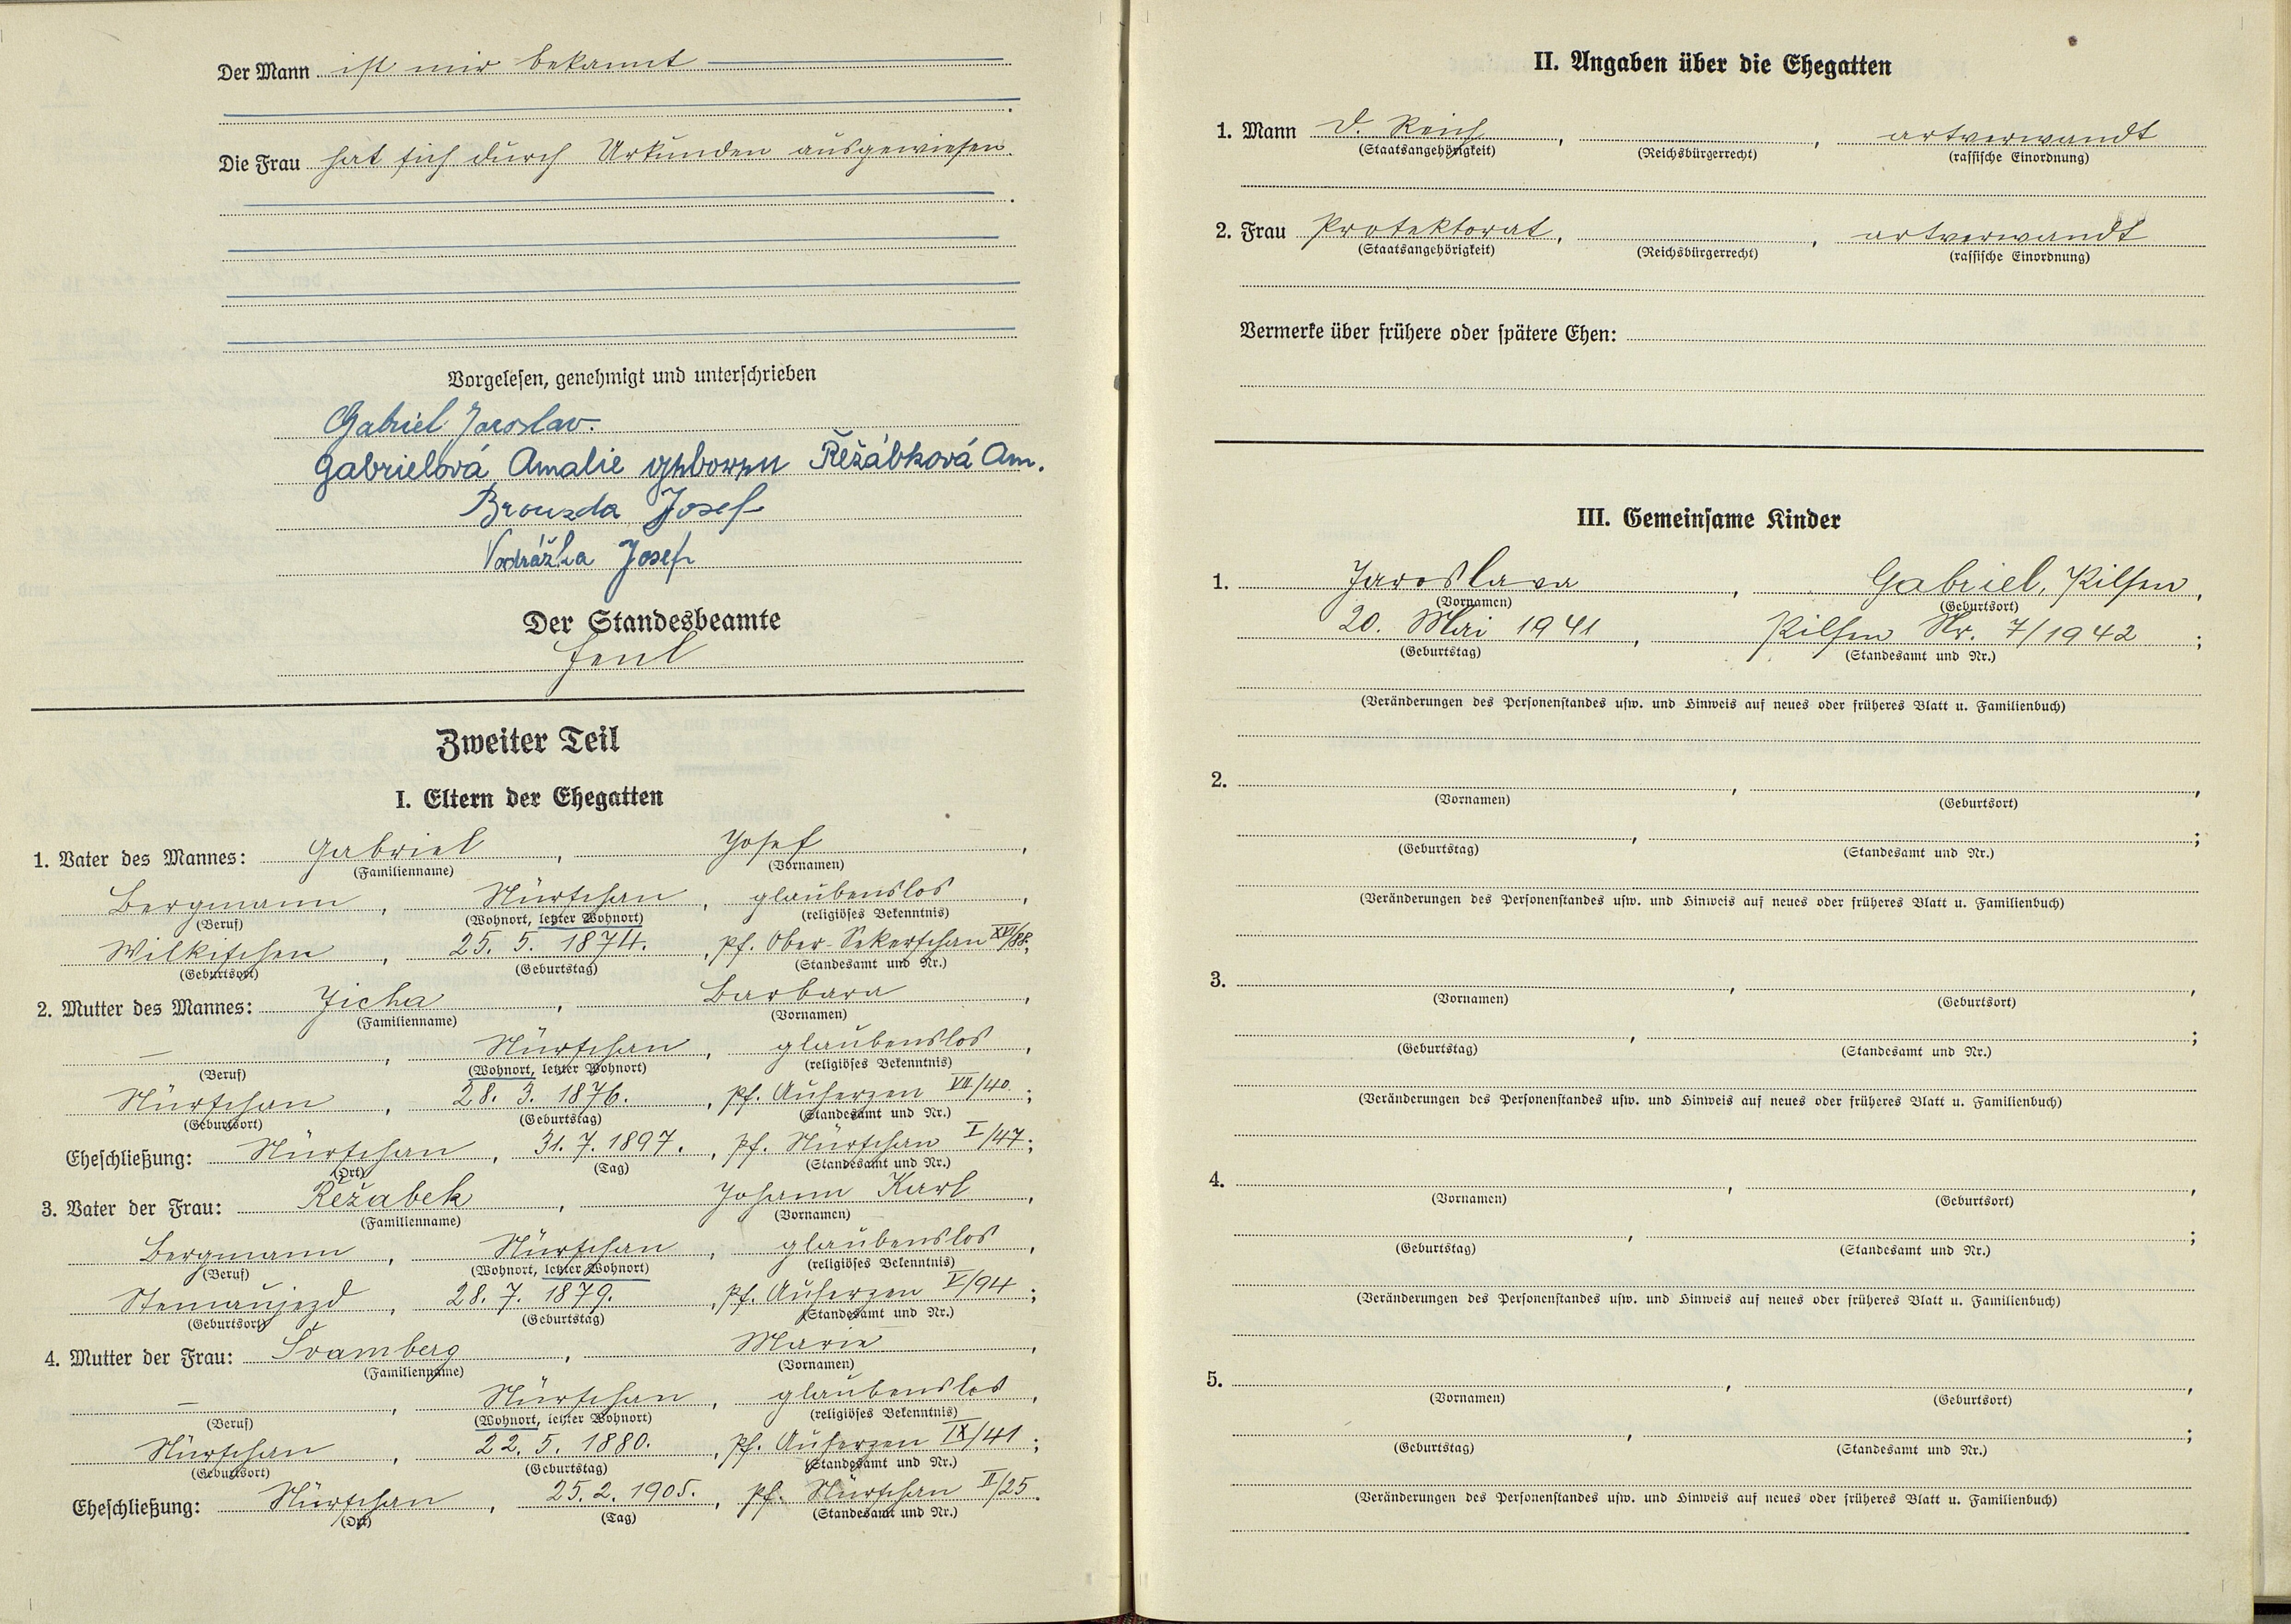 Der Mann ist mir bekannt
.
Die Frau hat sich durch Urkunden ausgewiesen.
.
Vorgelesen, genehmigt und unterschrieben
Gabriel Jaroslav.
Gabrielová Amalie geboren Řežábková Am.
Brouzda Josef
Vodrážka Josef
Der Standesbeamte
Zweiter Teil
I. Eltern der Ehegatten
1. Vater des Mannes: Gabriel, Josef,
(Familienname) (Vornamen)
Bergmann, Nürschan, glaubenslos,
(Beruf) (Wohnort, letzter Wohnort) (religiöses Bekenntnis)
Wilkischen, 25. 5. 1874., pf. Ober-Sekerschan XVI/88;
(Geburtsort) (Geburtstag) (Standesamt und Nr.)
2. Mutter des Mannes: Jicha, Barbara,
(Familienname) (Vornamen)
—, Nürschan, glaubenslos,
(Beruf) (Wohnort, letzter Wohnort) (religiöses Bekenntnis)
Nürschan, 28. 3. 1876., pf. Auherzen VII/40.;
(Geburtsort) (Geburtstag) (Standesamt und Nr.)
Eheschließung: Nürschan, 31. 7. 1897., pf. Nürschan I/47;
(Ort) (Tag) (Standesamt und Nr.)
3. Vater der Frau: Režabek, Johann Karl,
(Familienname) (Vornamen)
Bergmann, Nürschan, glaubenslos,
(Beruf) (Wohnort, letzter Wohnort) (religiöses Bekenntnis)
Steinaujezd, 28. 7. 1879., pf. Auherzen V/94;
(Geburtsort) (Geburtstag) (Standesamt und Nr.)
4. Mutter der Frau: Švamberg, Marie,
(Familienname) (Vornamen)
—, Nürschan, glaubenslos,
(Beruf) (Wohnort, letzter Wohnort) (religiöses Bekenntnis)
Nürschan, 22. 5. 1880., pf. Auherzen IX/41;
(Geburtsort) (Geburtstag) (Standesamt und Nr.)
Eheschließung: Nürschan, 25. 2. 1905., pf. Nürschan II/25.
(Ort) (Tag) (Standesamt und Nr.)
II. Angaben über die Ehegatten
1. Mann D. Reich, , artverwandt
(Staatsangehörigkeit) (Reichsbürgerrecht) (rassische Einordnung)
2. Frau Protektorat, , artverwandt
(Staatsangehörigkeit) (Reichsbürgerrecht) (rassische Einordnung)
Vermerke über frühere oder spätere Ehen:
III. Gemeinsame Kinder
1. Jaroslava, Gabriel, Pilsen,
(Vornamen) (Geburtsort)
20. Mai 1941, Pilsen Nr. 7/1942;
(Geburtstag) (Standesamt und Nr.)
(Veränderungen des Personenstandes usw. und Hinweis auf neues oder früheres Blatt u. Familienbuch)
2. , ,
(Vornamen) (Geburtsort)
, ;
(Geburtstag) (Standesamt und Nr.)
(Veränderungen des Personenstandes usw. und Hinweis auf neues oder früheres Blatt u. Familienbuch)
3. , ,
(Vornamen) (Geburtsort)
, ;
(Geburtstag) (Standesamt und Nr.)
(Veränderungen des Personenstandes usw. und Hinweis auf neues oder früheres Blatt u. Familienbuch)
4. , ,
(Vornamen) (Geburtsort)
, ;
(Geburtstag) (Standesamt und Nr.)
(Veränderungen des Personenstandes usw. und Hinweis auf neues oder früheres Blatt u. Familienbuch)
5. , ,
(Vornamen) (Geburtsort)
, ;
(Geburtstag) (Standesamt und Nr.)
(Veränderungen des Personenstandes usw. und Hinweis auf neues oder früheres Blatt u. Familienbuch)